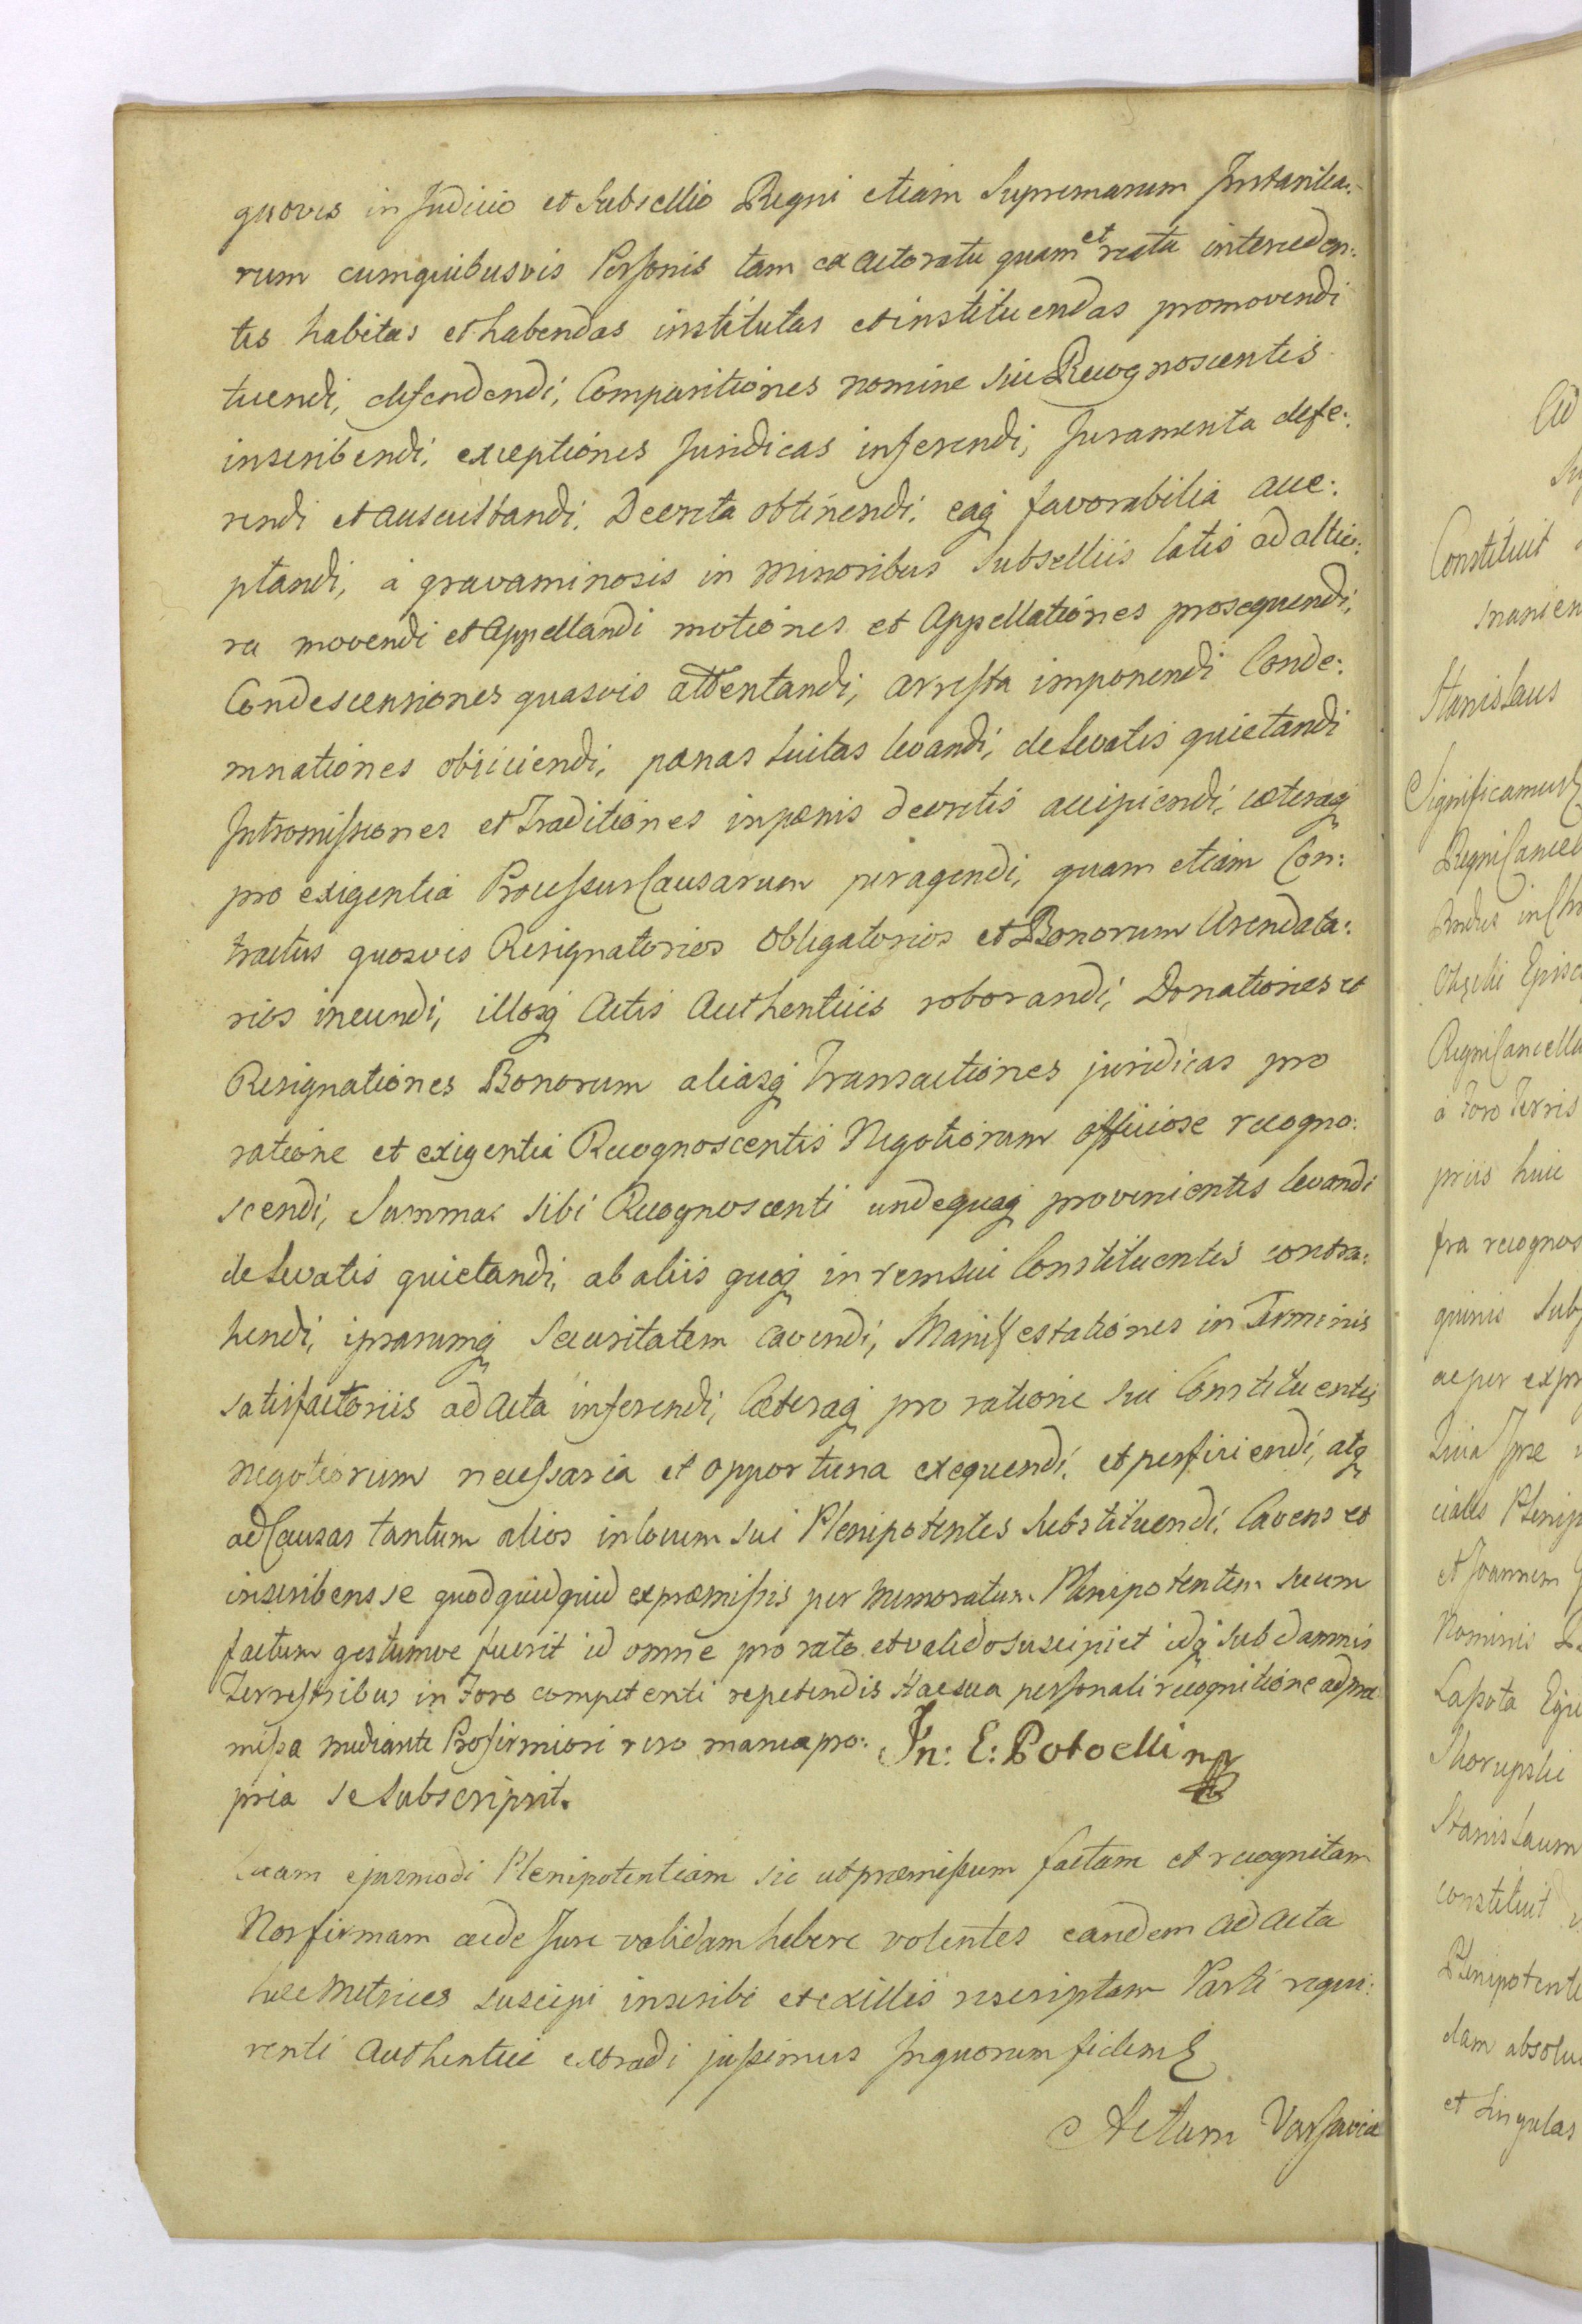 quovis in Judicio et Subsellio Regni etiam Supremarum Instantia:
rum cumquibusvis Personis tam ex actoratu quam et reatu interceden:
tes habitas et habendas institutas et instituendas promovendi
tuendi, defendendi, Comparitiones nomine sui Recognoscentis
inscribendi, exceptiones Juridicas inferendi, Juramenta defe:
rendi et auscultandi. Decreta obtinendi. eaq favorabilia acce:
ptandi, à gravaminosis in minoribus Subselliis latis ad altio:
ra movendi et Appellandi motiones et Appellationes prosequendi,
Condescensiones quasvis attentandi, arresta imponendi Conde:
mnationes obiiciendi, pænas luitas levandi, de levatis quietandi
Intromissiones et Traditiones in pænis decretis accipiendi, cæteraq
pro exigentia Processus Causarum peragendi, quam etiam Con:
tractus quosvis Resignatorios Obligatorios et Bonorum Arendato:
rios ineundi, illosq Actis Authenticis roborandi, Donationes et
Resignationes Bonorum aliasq Transactiones juridicas pro
ratione et exigentia Recognoscentis Negotiorum officiose recogno:
scendi, Summas sibi Recognoscenti undequaq provenientes levandi
de levatis quietandi, ab aliis quoq in rem sui Constituentis contra:
hendi, ipsarumq Securitatem cavendi, Manifestationes in Terminis
satisfactoriis ad Acta inferendi, Cæteraq pro ratione sui Constituentis
negotiorum necessaria et opportuna exequendi, et perficiendi, atq
ad Causas tantum alios in locum sui Plenipotentes Substituendi. Cavens et
inscribens se quod quidquid ex præmissis per memoratum Plenipotentem suum
factum gestumve fuerit id omne pro rato et valido suscipiet idq sub damnis
Terrestribus in Foro competenti repetendis Hac sua personali recognitione ad præ
missa mediante Pro firmiori vero manu pro: In: E: Potocki mp
pria se subscripsit.
ejusmodi Plenipotentiam sic ut præmissum factam et recognitam
Nos firmam ac de Jure validam habere volentes eandem ad Acta
hæc Metrices suscipi inscribi et ex illis rescriptam Parti requi:
renti Authentice extradi jussimus In quorum fidem
Actum Varsaviæ
Constituit
Stanislaus
Significamus
Regni Cancel
Regni Cancella
à Foro Terris
priis huic
fra recognos
quinis Sub
ac per expr
Quia Ipse
ciales Plenip
et Joannem
Nominis
Skorupski
Stanislaum
constituit
Plenipotente
dam absolu
et singulas